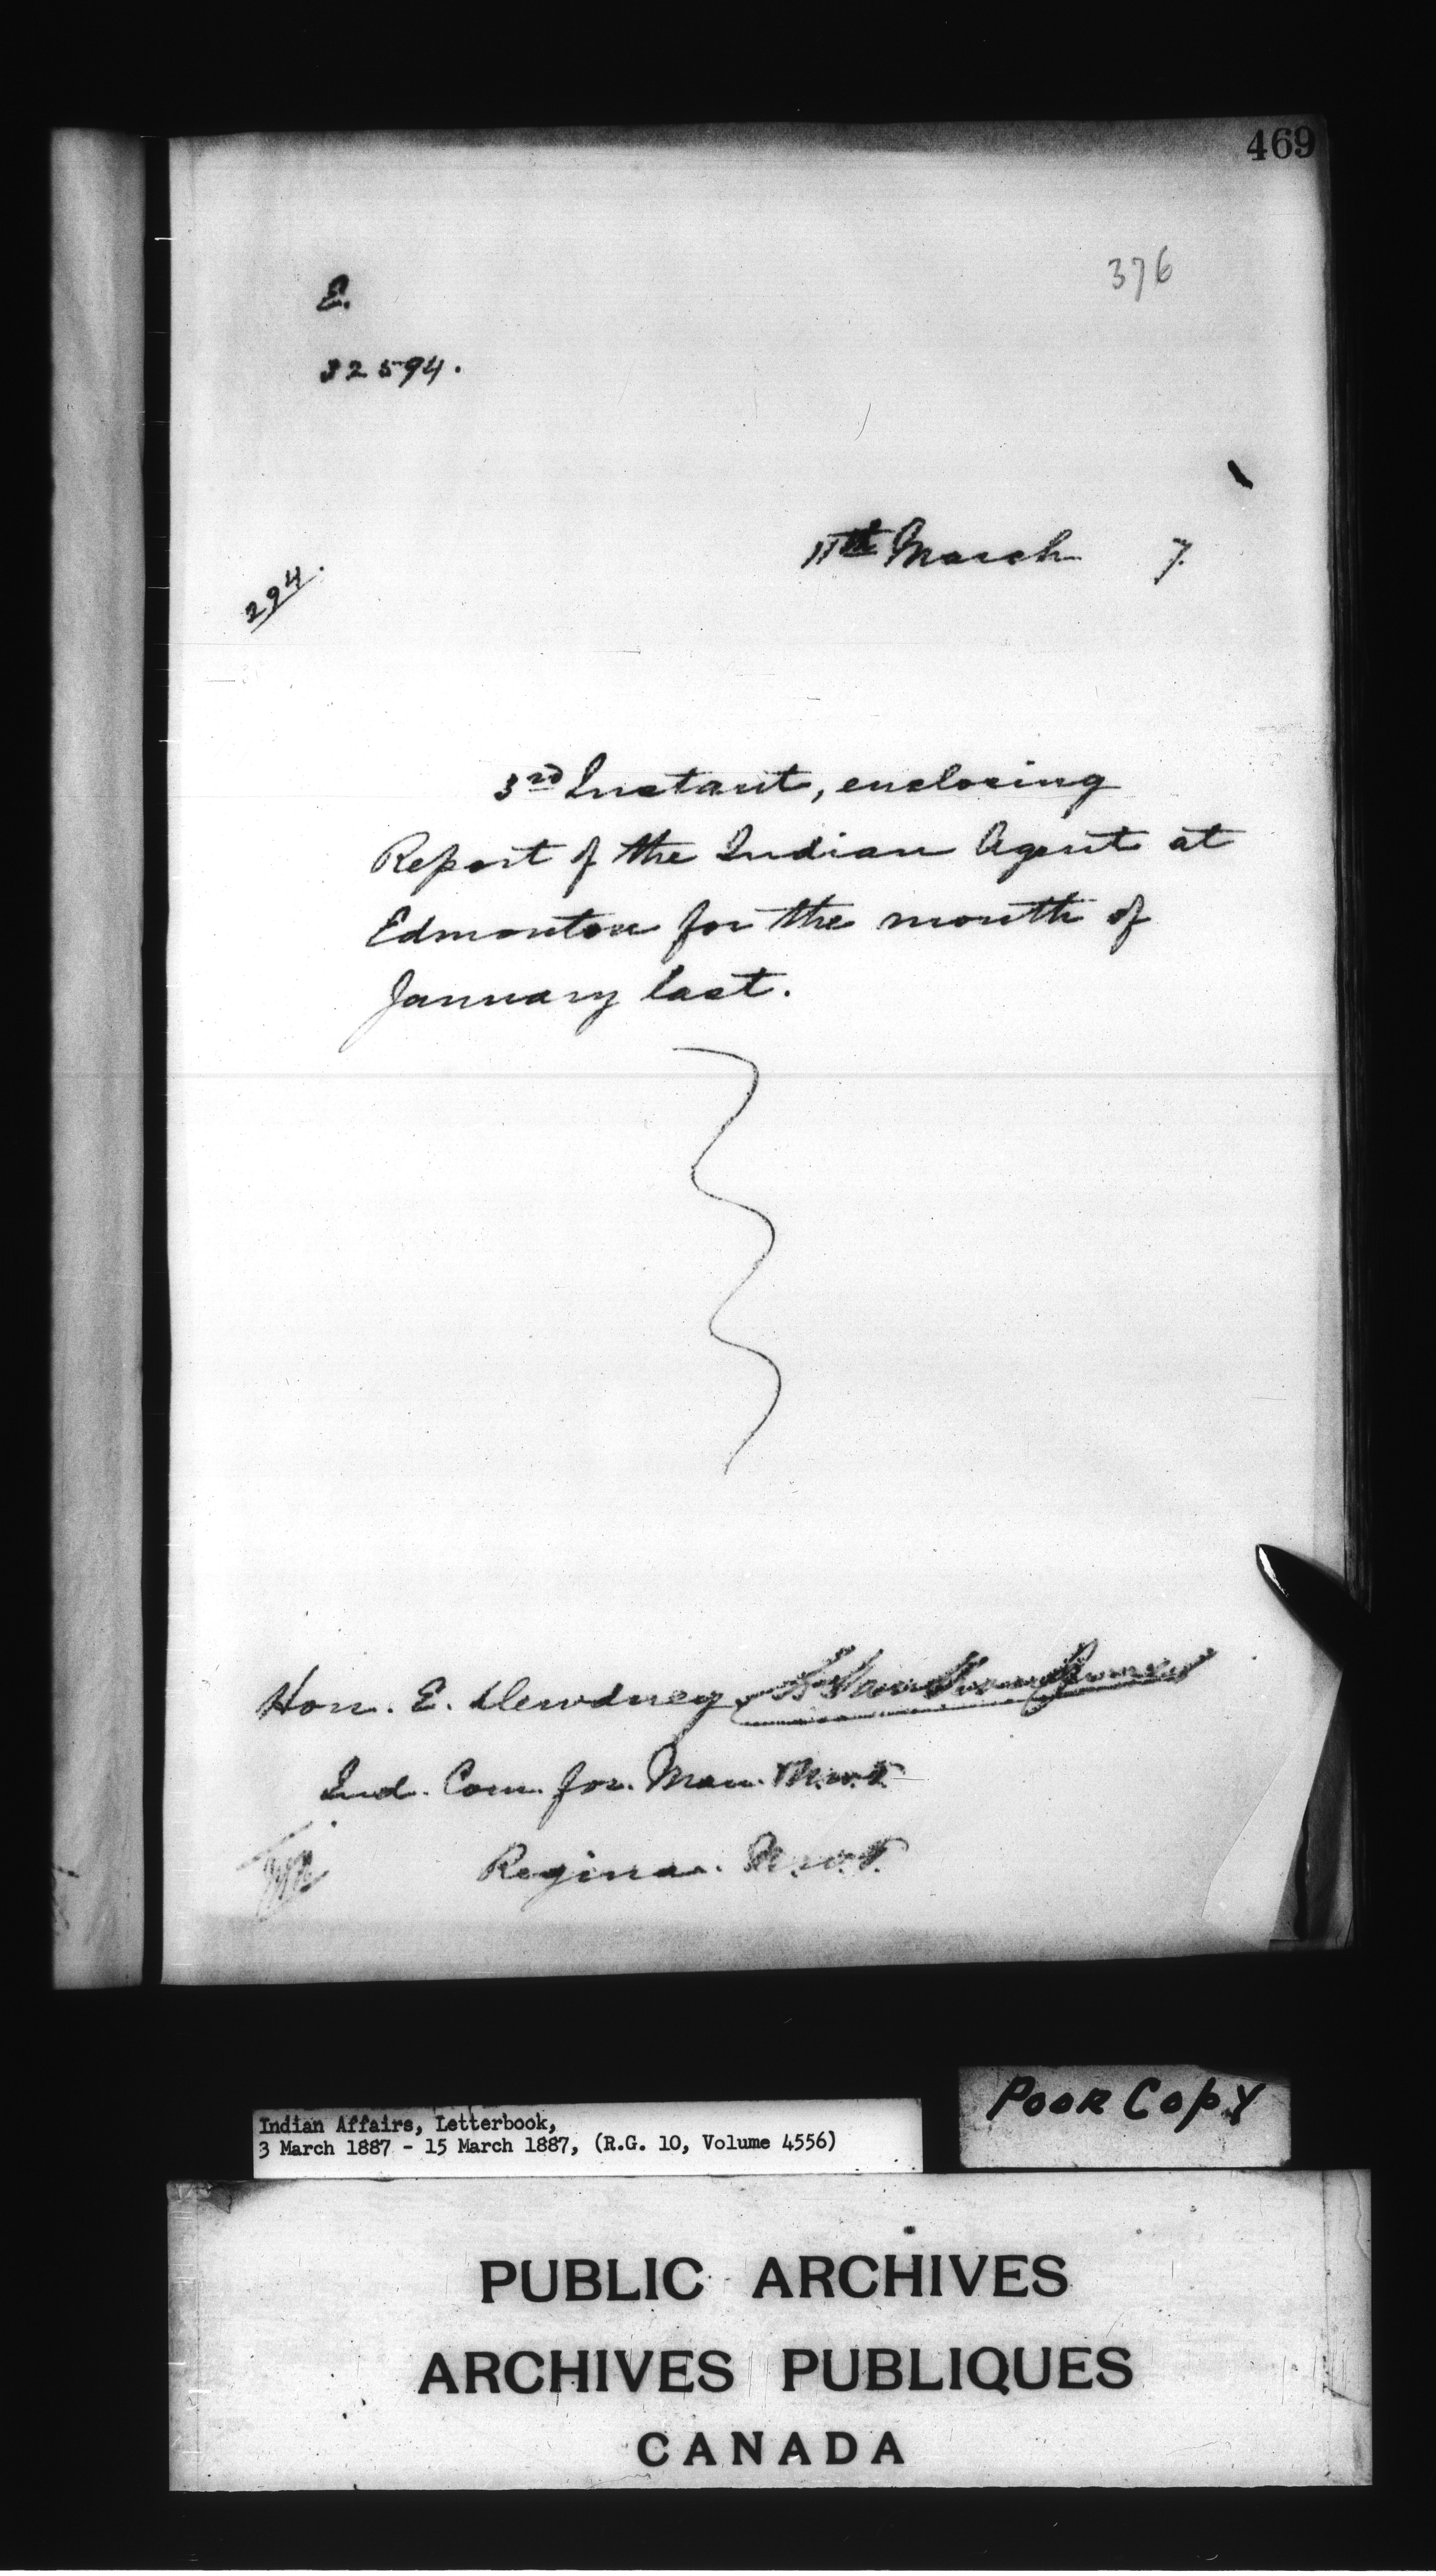 469
376
E.
32594.
11th March 7.
294.
3rd Instant, enclosing
Report of the Indian Agent at
Edmonton for the month of
January last.
Hon. E. Dewdney L. VanKoughnet
Ind. Com. for. Man. N.W.T.
Regina. N.W.T.
Poor Copy
Indian Affairs, Letterbook,
3 March 1887 - 15 March 1887, (R.G. 10, Volume 4556)
PUBLIC ARCHIVES
ARCHIVES PUBLIQUES
CANADA